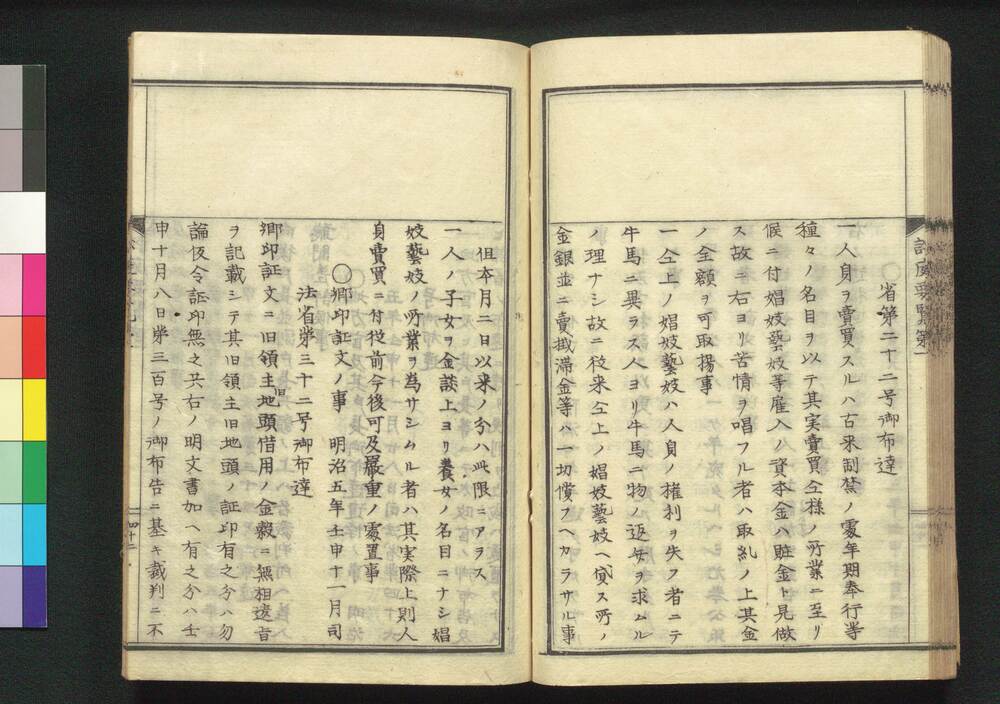 省第二十二号御布達
一人身ヲ賣買スルハ古来制禁ノ處年期奉行等
種々ノ名目ヲ以テ其実賣買仝様ノ所業ニ至リ
候ニ付娼妓藝妓等雇入ノ資本金ハ賍金ト見做
ス故ニ右ヨリ苦情ヲ唱フル者ハ取糺ノ上其金
ノ全額ヲ可取揚事
一仝上ノ娼妓藝妓ハ人身ノ権利ヲ失フ者ニテ
牛馬ニ異ラス人ヨリ牛馬ニ物ノ返弁ヲ求ムル
ノ理ナシ故ニ従来仝上ノ娼妓藝妓ヘ貸ス所ノ
金銀並ニ賣掛滞金等ハ一切償フヘカラサル事
但本月二日以来ノ分ハ此限ニアラス
一人ノ子女ヲ金談上ヨリ養女ノ名目ニナシ娼
妓藝妓ノ所業ヲ為サシムル者ハ其実際上則人
身賣買ニ付従前今後可及嚴重ノ處置事
〇郷印証文ノ事 明治五年壬申十一月司
法省第三十二号御布達
郷印証文ニ旧領主旧地頭借用ノ金穀ニ無相違旨
ヲ記載シテ其旧領主旧地頭ノ証印有之分ハ勿
論仮令証印無之共右ノ明文書加ヘ有之分ハ壬
申十月八日第三百号ノ御布告ニ基キ裁判ニ不
四十二